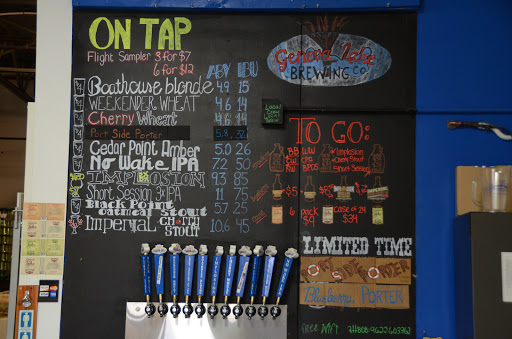 ON TAP
Flight Sampler 3 for $7
6 for $12
ABV IBU
Boathouse blonde 4.9 15
WEEKENDER WHEAT 4.6 14
Cherry Wheat 4.6 14
Port Side Porter 5.8 32
Cedar Point Amber 5.0 26
No Wake IPA 7.2 50
IMPLOSION 9.3 85
Short Session 11 75
Black Point
oatmeal Stout 5.7 25
Imperial STOUT 10.6 45
Geneva Lake
BREWING CO.
TO GO:
BB WW Implosion
CW CPA Cherry Stout
BPOS Short Session
$5
6 pack Case of 24
$9 $34
LIMITED TIME
PORT SIDE PORTER
Blueberry PORTER